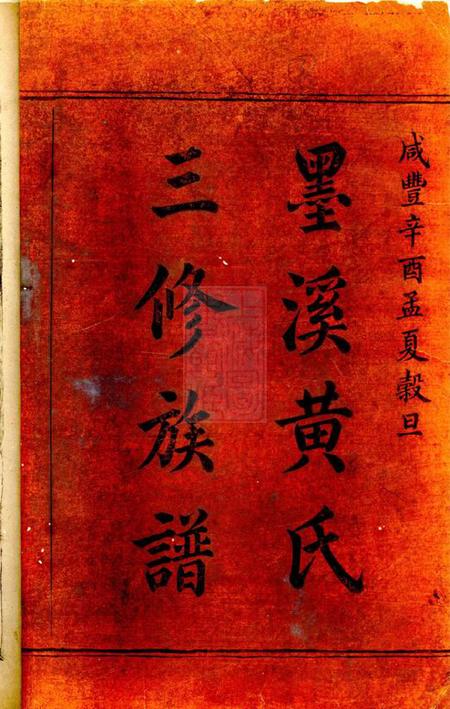 咸豐辛酉孟夏穀旦
墨溪黄氏
三修族譜